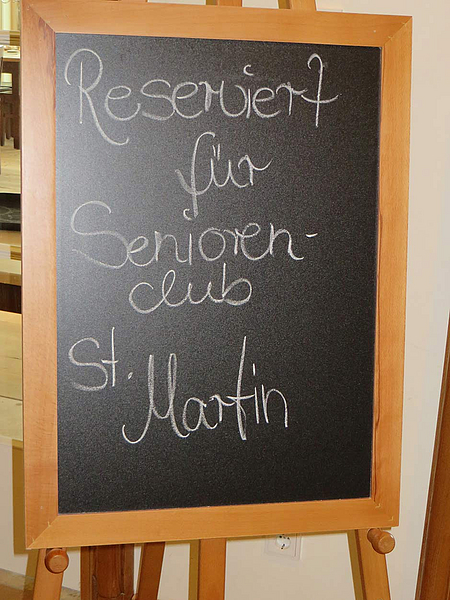 Reserviert
für
Senioren-
club
St. Martin